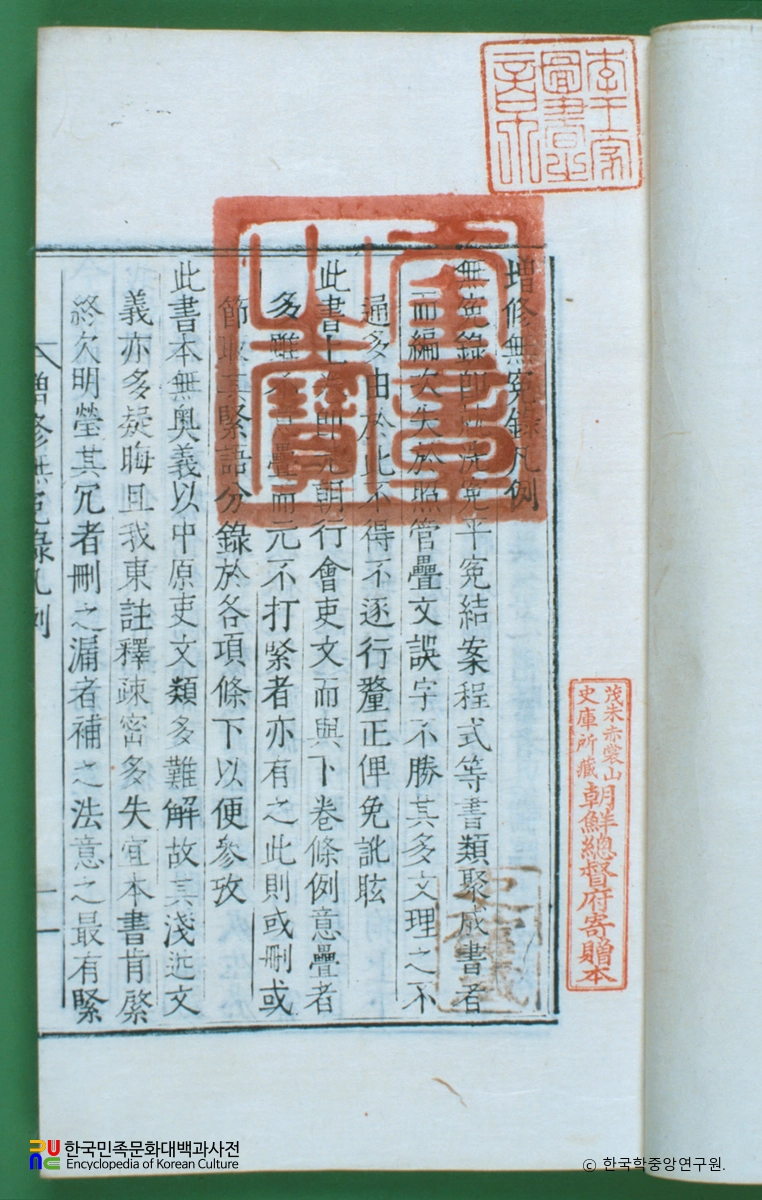 李王家圖書之章
增修無冤錄凡例
無冤錄卽洗冤平冤結案程式等書類聚成書者
而編次失於照管疊文誤字不勝其多文理之不
通多由於此不得不逐行釐正俾免訛眩
此書上卽元朝行會吏文而與下卷條例意疊者
多雖疊而元不打緊者亦有之此則或刪或
節取其緊語分錄於各項條下以便參攷
此書本無奧義以中原吏文類多難解故其淺近文
義亦多疑晦且我東註釋疎密多失宜本書肯綮
終欠明瑩其冗者刪之漏者補之法意之最有緊
增修無冤錄凡例 一
茂朱赤裳山
史庫所藏
朝鮮總督府寄贈本
한국민족문화대백과사전
Encyclopedia of Korean Culture
ⓒ 한국학중앙연구원.